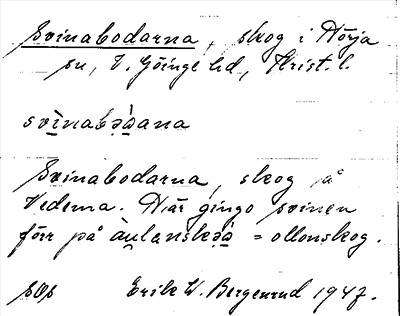 Svinabodarna, skog i Hörja
sn, V. Göinge hd, Krist. l.
svìnabǝ̀ꭤana
Svinabodarna, skog på
Vedema. Här gingo svinen
förr på = ollonskog.
Erik W. Bergenrud 1947.